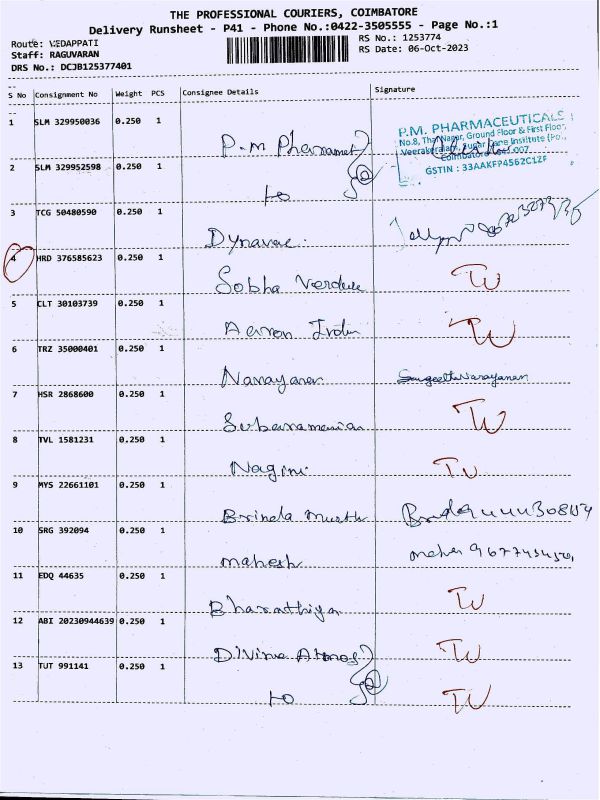 THE PROFESSIONAL COURIERS, COIMBATORE
Delivery Runsheet - P41 - Phone No.:0422-3505555 - Page No.:1
Route: VEDAPPATI
RS No.: 1253774
Staff: RAGUVARAN
RS Date: 06-Oct-2023
DRS No.: DCJB125377401
S No Consignment No Weight PCS Consignee Details Signature
1 SLM 329950036 0.250 1
P.M. PHARMACEUTICALS
No.8, Thai Nagar, Ground Floor & First Floor,
Veerakeralam, Sugar Cane Institute (Po),
Coimbatore 007.
GSTIN : 33AAKFP4562C1ZF
P.m
2 SLM 329952598 0.250 1
to
3 TCG 50480590 0.250 1
4 HRD 376585623 0.250 1
Sobha TW
5 CLT 30103739 0.250 1
TW
6 TRZ 35000401 0.250 1
Narayanan Sangeetha Narayanan
7 HSR 2868600 0.250 1
Subaramanian TW
8 TVL 1581231 0.250 1
Nagini TW
9 MYS 22661101 0.250 1
Brinda Murth
10 SRG 392094 0.250 1
mahesh
11 EDQ 44635 0.250 1
Bharathiya TW
12 ABI 20230944639 0.250 1
Divine TW
13 TUT 991141 0.250 1
to TW